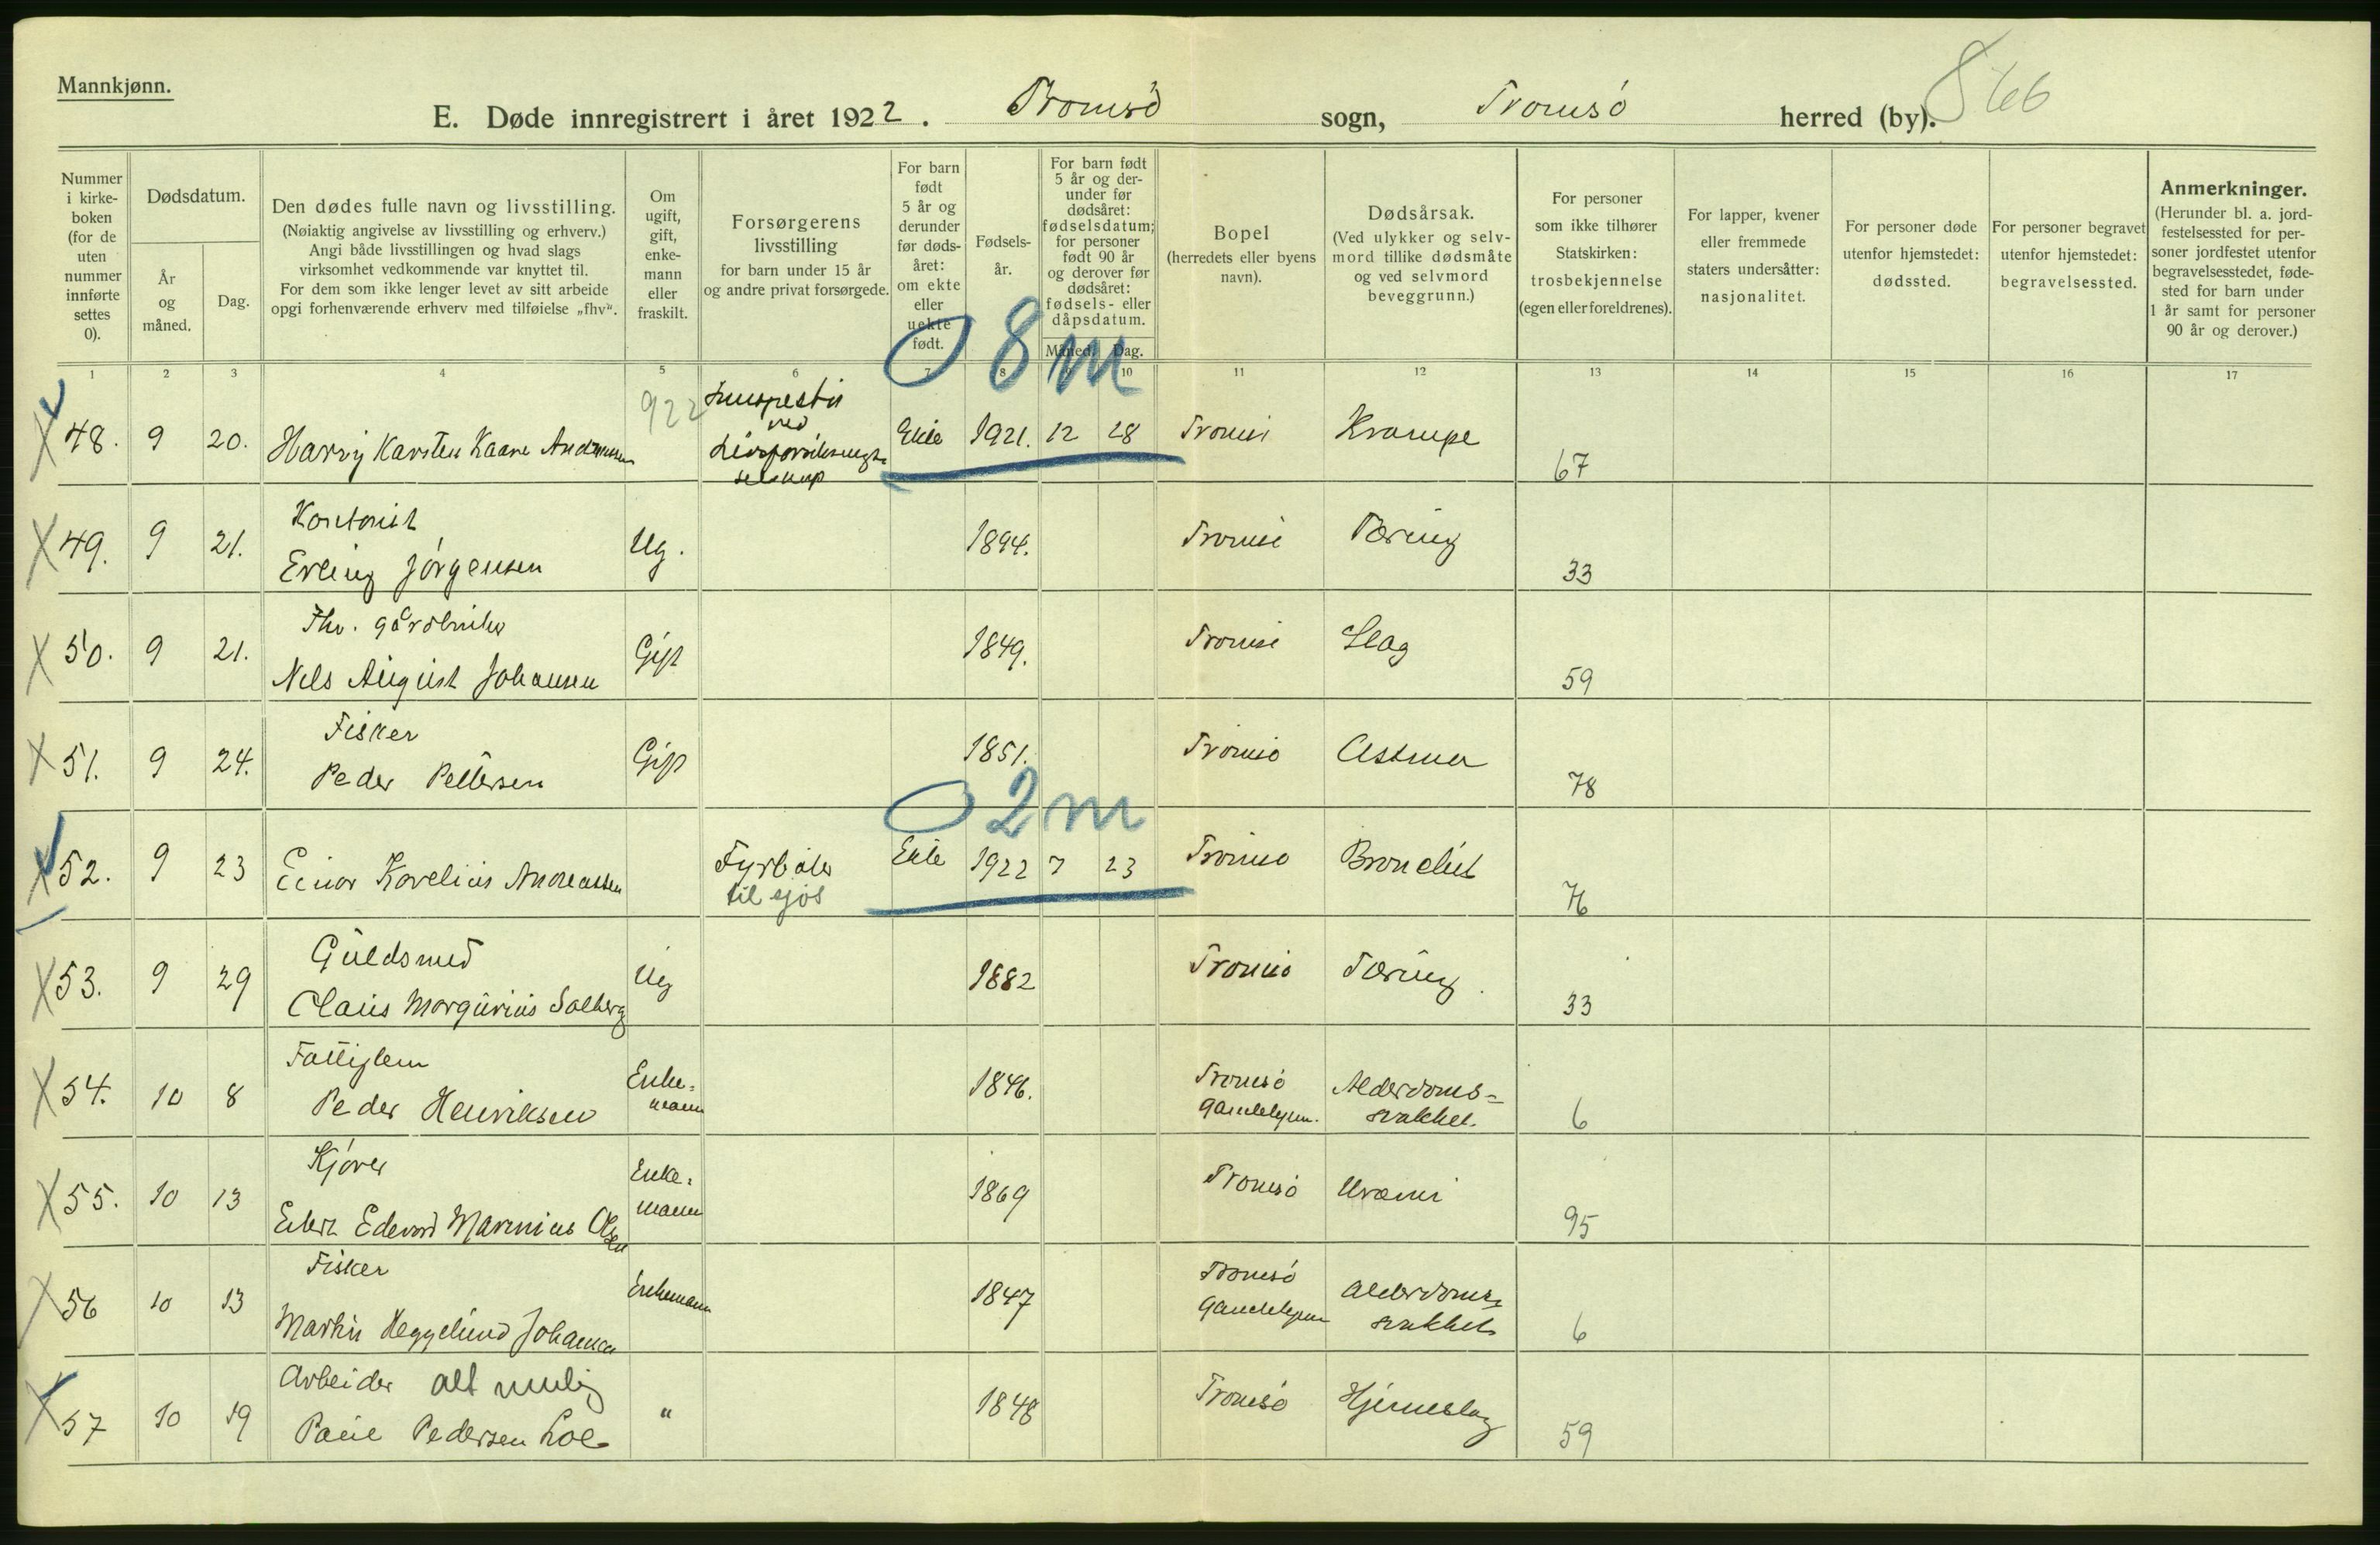 Mannkjønn.
E. Døde innregistrert i året 1922. Tromsö sogn, Tromsö herred (by).
Nummer i kirke-boken (for de uten nummer innførte settes 0).
Dødsdatum.
År og måned.
Dag.
Den dødes fulle navn og livsstilling.
(Nøiaktig angivelse av livsstilling og erhverv.)
Angi både livsstillingen og hvad slags
virksomhet vedkommende var knyttet til.
For dem som ikke lenger levet av sitt arbeide
opgi forhenværende erhverv med tilføielse „fhv“.
Om ugift, gift, enke-mann eller fraskilt.
Forsørgerens livsstilling
for barn under 15 år
og andre privat forsørgede.
For barn født 5 år og derunder før døds-året: om ekte eller uekte født.
Fødsels-år.
For barn født 5 år og der-under før dødsåret: fødselsdatum; for personer født 90 år og derover før dødsåret: fødsels- eller dåpsdatum.
Måned. Dag.
Bopel
(herredets eller byens navn).
Dødsårsak.
(Ved ulykker og selv-mord tillike dødsmåte og ved selvmord beveggrunn.)
For personer som ikke tilhører Statskirken: trosbekjennelse (egen eller foreldrenes).
For lapper, kvener eller fremmede staters undersåtter: nasjonalitet.
For personer døde utenfor hjemstedet: dødssted.
For personer begravet utenfor hjemstedet: begravelsessted.
Anmerkninger.
(Herunder bl. a. jord-festelsessted for per-soner jordfestet utenfor begravelsesstedet, føde-sted for barn under 1 år samt for personer 90 år og derover.)
1 2 3 4 5 6 7 8 10 11 12 13 14 15 16 17
0 8 m
922
48. 9 20. Harry Karsten Kaare Andreassen
ved
selskap
Ekte 1921. 12 28 Tromsö Krampe 67
Kontorist
49. 9 21. Erling Jörgensen Ug. 1894. Tromsö Tæring 33
Fhv. gårdbruker
50. 9 21. Nils August Johansen Gift 1849. Tromsö Slag 59
Fisker
51. 9 24. Peder Pettersen Gift 1851. Tromsö Astma 78
0 2 m
52. 9 23 Einar Korelius Andreassen Fyrböter Ekte 1922 7 23 Tromsö Bronchit 76
til sjös
Guldsmed
53. 9 29 Claus Margurius Solberg Ug 1882 Tromsö Tæring. 33
Fattiglem
54. 10 8 Peder Henriksen Enke-mann 1846. Tromsö Gamlehjem. Alderdoms-svakhet. 6
Kjörer
55. 10 13 Edevard Marinius Olsen Enke-mann 1869 Tromsö Uræmi 95
Fisker
56 10 13 Martin Heggelund Johansen Enkemann 1847 Tromsö Gamlehjem Alderdoms-svakhet 6
Arbeider alt mulig
57 10 19 Paul Pedersen Loe " 1848 Tromsö Hjerneslag 59